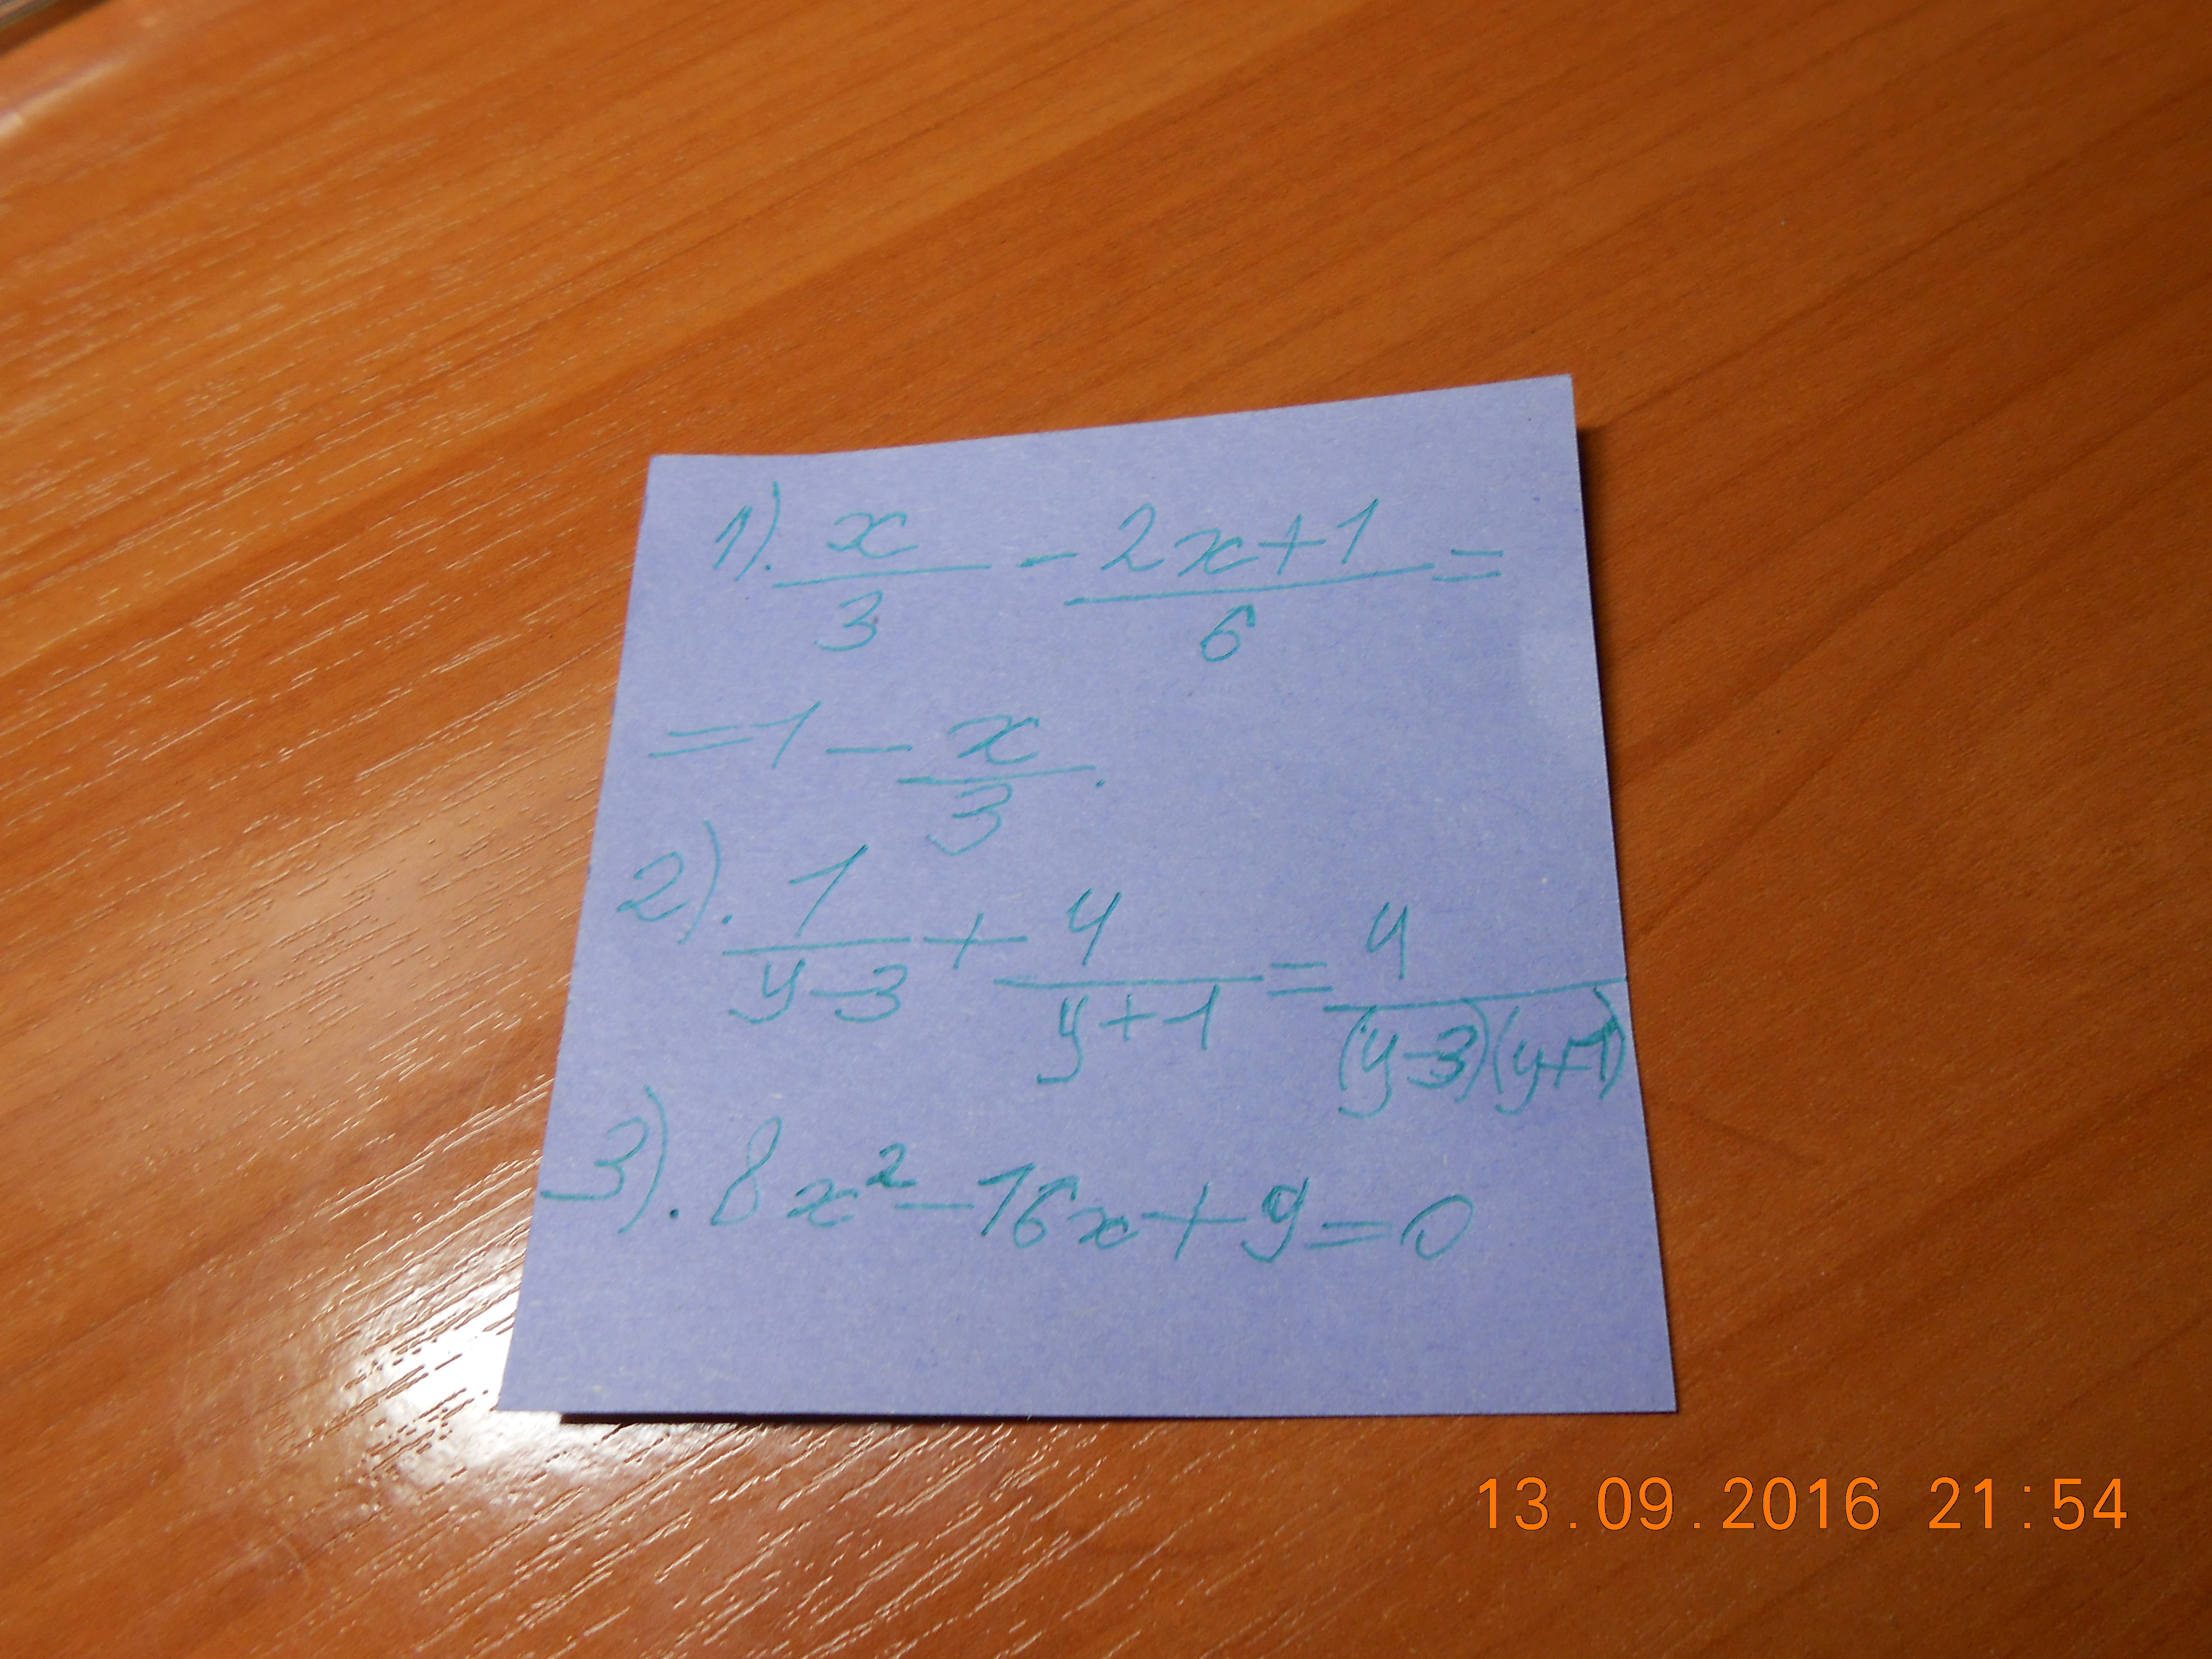 1). x/3 - 2x+1/6 =
= 1 - x/3.
2). 1/y-3 + 4/y+1 = 4/(y-3)(y+1)
3). 8x² - 16x + 9 = 0
13.09.2016 21:54